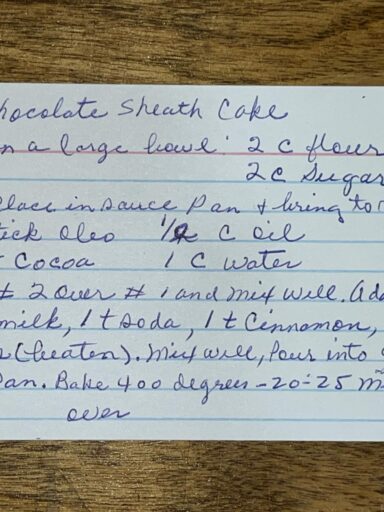 hocolate Sheath Cake
n a large bowl: 2 c flour
2 c Sugar
lace in sauce Pan & bring to
tick Oleo 1/2 C oil
Cocoa 1 C water
# 2 over # 1 and mix will. Ad
milk, 1 t soda, 1 t Cinnamon,
(beaten). Mix well, Pour into
Pan. Bake 400 degrees - 20-25 m
over